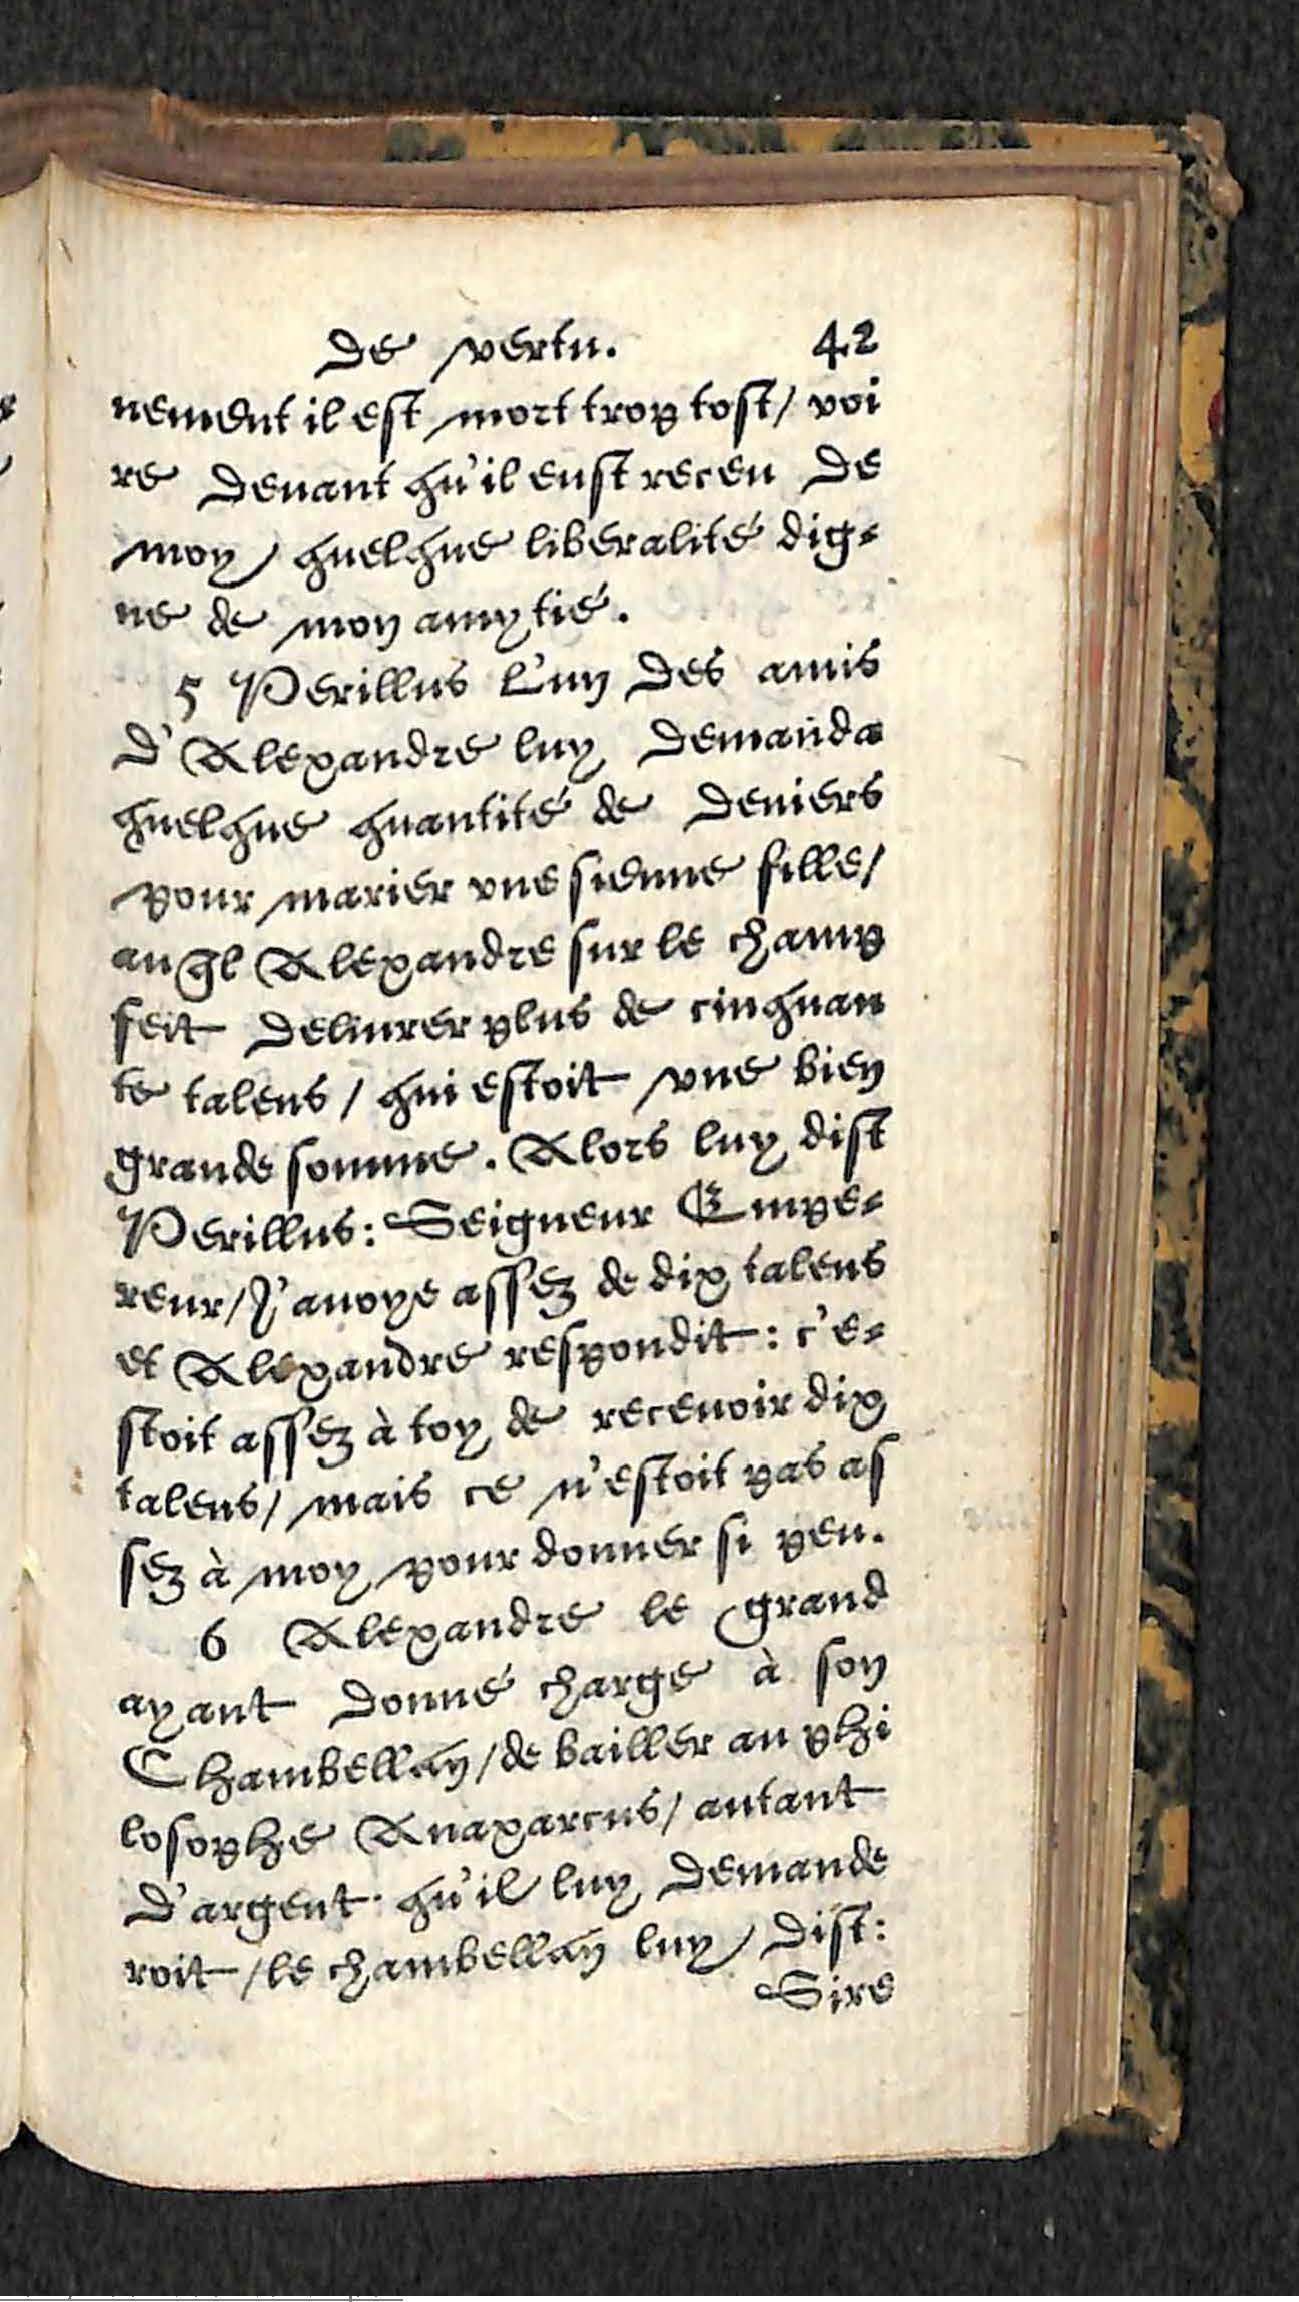 de vertu. 42
nement il est mort trop tost/ voi
re deuant qu'il eust receu de
moy/ quelque liberalité dig-
ne de mon amytié.
5 Perillus l'un des amis
d'Alexandre luy demanda
quelque quantité de deniers
pour marier vne sienne fille/
auql Alexandre sur le champ
feit deliurer plus de cinquan
te talens/ qui estoit vne bien
grande somme. Alors luy dist
Perillus: Seigneur Empe-
reur/ J'auoye assez de dix talens
et Alexandre respondit: c'e-
stoit assez à toy de receuoir dix
talens/ mais ce n'estoit pas as
sez à moy pour donner si peu.
6 Alexandre le grand
ayant donné charge à son
Chambellan/ de bailler au phi
losophe Anaxarcus/ autant
d'argent qu'il luy demande
roit/ le chambellan luy dist:
Sire